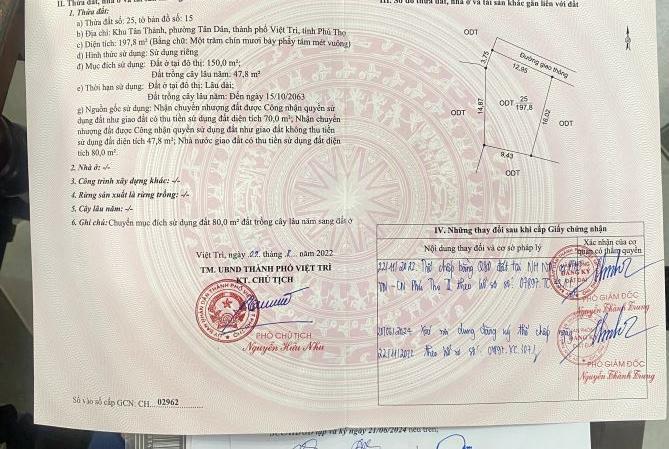 II. Thửa đất, nhà ở
1. Thửa đất:
a) Thửa đất số: 25, tờ bản đồ số: 15
b) Địa chỉ: Khu Tân Thành, phường Tân Dân, thành phố Việt Trì, tỉnh Phú Thọ
c) Diện tích: 197,8 m² (Bằng chữ: Một trăm chín mươi bảy phẩy tám mét vuông)
d) Hình thức sử dụng: Sử dụng riêng
đ) Mục đích sử dụng: Đất ở tại đô thị: 150,0 m²;
Đất trồng cây lâu năm: 47,8 m²
e) Thời hạn sử dụng: Đất ở tại đô thị: Lâu dài;
Đất trồng cây lâu năm: Đến ngày 15/10/2063
g) Nguồn gốc sử dụng: Nhận chuyển nhượng đất được Công nhận quyền sử
dụng đất như giao đất có thu tiền sử dụng đất diện tích 70,0 m²; Nhận chuyển
nhượng đất được Công nhận quyền sử dụng đất như giao đất không thu tiền
sử dụng đất diện tích 47,8 m²; Nhà nước giao đất có thu tiền sử dụng đất diện
tích 80,0 m².
2. Nhà ở: -/-
3. Công trình xây dựng khác: -/-
4. Rừng sản xuất là rừng trồng: -/-
5. Cây lâu năm: -/-
6. Ghi chú: Chuyển mục đích sử dụng đất 80,0 m² đất trồng cây lâu năm sang đất ở
Việt Trì, ngày 02 tháng 8 năm 2022
TM. UBND THÀNH PHỐ VIỆT TRÌ
KT. CHỦ TỊCH
PHÓ CHỦ TỊCH
Nguyễn Hữu Nhu
Số vào sổ cấp GCN: CH 02962
III. Sơ đồ thửa đất, nhà ở và tài sản khác gắn liền với đất
ODT
3,75
Đường giao thông
12,95
ODT
14,87
ODT 25
197,8
16,02
ODT
9,43
ODT
IV. Những thay đổi sau khi cấp Giấy chứng nhận
Nội dung thay đổi và cơ sở pháp lý
Xác nhận của cơ quan có thẩm quyền
22/11/2022 Thế chấp bằng QSD đất tại NH
CN Phú Thọ II theo hồ sơ số: 07897.TC
ĐĂNG KÝ
ĐẤT ĐAI
PHÓ GIÁM ĐỐC
Nguyễn Thành Trung
2024 Xóa nội dung đăng ký thế chấp ngày
22/11/2022 theo hồ sơ số
PHÓ GIÁM ĐỐC
Nguyễn Thành Trung
lập và ký ngày 21/06/2024 nêu trên,